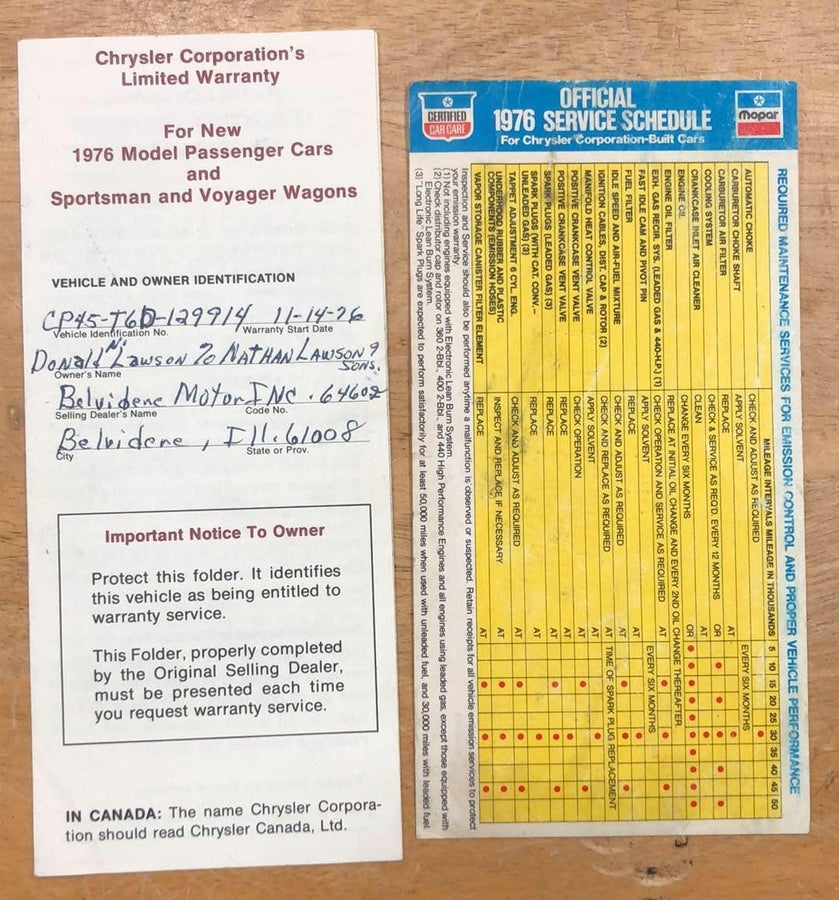 Chrysler Corporation's
Limited Warranty
For New
1976 Model Passenger Cars
and
Sportsman and Voyager Wagons
VEHICLE AND OWNER IDENTIFICATION
CP45-T6D-129914 11-14-76
Vehicle Identification No. Warranty Start Date
Donald N. Lawson % NATHAN LAWSON & SONS.
Owner's Name
Belvidere Motor INC. 64602
Selling Dealer's Name Code No.
Belvidere, Ill. 61008
City State or Prov.
Important Notice To Owner
Protect this folder. It identifies
this vehicle as being entitled to
warranty service.
This Folder, properly completed
by the Original Selling Dealer,
must be presented each time
you request warranty service.
IN CANADA: The name Chrysler Corpora-
tion should read Chrysler Canada, Ltd.
CERTIFIED
CAR CARE
OFFICIAL
1976 SERVICE SCHEDULE
For Chrysler Corporation-Built Cars
Mopar
REQUIRED MAINTENANCE SERVICES FOR EMISSION CONTROL AND PROPER VEHICLE PERFORMANCE
MILEAGE INTERVALS MILEAGE IN THOUSANDS 5 10 15 20 25 30 35 40 45 50
AUTOMATIC CHOKE CHECK AND ADJUST AS REQUIRED
CARBURETOR CHOKE SHAFT APPLY SOLVENT EVERY SIX MONTHS
CARBURETOR AIR FILTER REPLACE AT
COOLING SYSTEM CHECK & SERVICE AS REQ'D. EVERY 12 MONTHS OR
CRANKCASE INLET AIR CLEANER CLEAN AT
ENGINE OIL CHANGE EVERY SIX MONTHS OR
ENGINE OIL FILTER REPLACE AT INITIAL OIL CHANGE AND EVERY 2ND OIL CHANGE THEREAFTER
EXH. GAS RECIR. SYS. (LEADED GAS & 440-H.P.) (1) CHECK OPERATION AND SERVICE AS REQUIRED AT
FAST IDLE CAM AND PIVOT PIN APPLY SOLVENT EVERY SIX MONTHS
FUEL FILTER REPLACE AT
IDLE SPEED AND AIR-FUEL MIXTURE CHECK AND ADJUST AS REQUIRED AT
IGNITION CABLES, DIST. CAP & ROTOR (2) CHECK AND REPLACE AS REQUIRED AT TIME OF SPARK PLUG REPLACEMENT
MANIFOLD HEAT CONTROL VALVE APPLY SOLVENT AT
POSITIVE CRANKCASE VENT VALVE CHECK OPERATION AT
POSITIVE CRANKCASE VENT VALVE REPLACE AT
SPARK PLUGS (LEADED GAS) (3) REPLACE AT
SPARK PLUGS (WITH CAT. CONV.—
UNLEADED GAS) (3) REPLACE AT
TAPPET ADJUSTMENT 6 CYL. ENG. CHECK AND ADJUST AS REQUIRED AT
UNDERHOOD RUBBER AND PLASTIC
COMPONENTS (EMISSION HOSES) INSPECT AND REPLACE IF NECESSARY AT
VAPOR STORAGE CANISTER FILTER ELEMENT REPLACE AT
Inspection and Service should also be performed anytime a malfunction is observed or suspected. Retain receipts for all vehicle emission services to protect
your emission warranty.
(1) Not including engines equipped with Electronic Lean Burn System.
(2) Check distributor cap and rotor on 360 2-Bbl., 400 2-Bbl. and 440 High Performance Engines and all engines using leaded gas, except those equipped with
Electronic Lean Burn System.
(3) "Long Life" Spark Plugs are expected to perform satisfactorily for at least 50,000 miles when used with unleaded fuel, and 30,000 miles with leaded fuel.